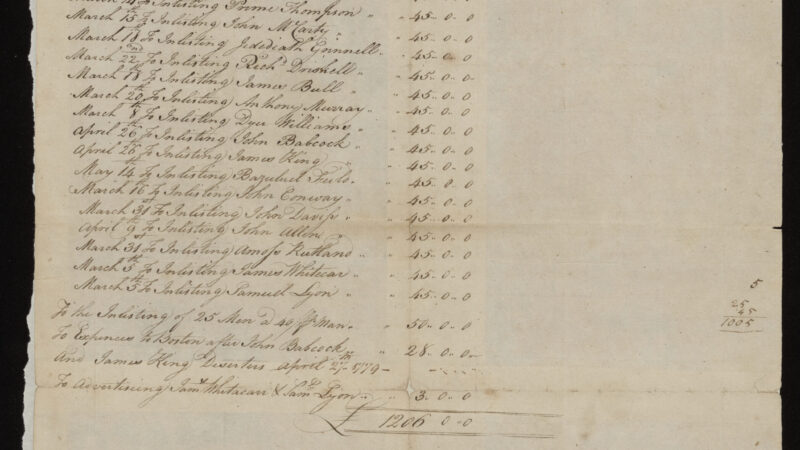 To Inlisting Prime Thompson " " 45 " 0 " 0
March 15th To Inlisting John McCarty " " 45 " 0 " 0
March 18 To Inlisting Jedediath Grinnell " 45 " 0 " 0
March 22nd To Inlisting Richd Driskell " " 45 " 0 " 0
March 18th To Inlisting James Bull " " 45 " 0 " 0
March 20th To Inlisting Anthony Murray " " 45 " 0 " 0
March 8th To Inlisting Dyer Williams " " 45 " 0 " 0
April 26th To Inlisting John Babcock " " 45 " 0 " 0
April 26th To Inlisting James King " " 45 " 0 " 0
May 14 To Inlisting " " 45 " 0 " 0
March 16th To Inlisting John Conway " " 45 " 0 " 0
March 31st To Inlisting John Daviss " " 45 " 0 " 0
April 9th To Inlisting John Allen " " 45 " 0 " 0
March 31st To Inlisting Amoss Rutland " " 45 " 0 " 0
March 5th To Inlisting James Whitecar " " 45 " 0 " 0
March 5th To Inlisting Samuel Lyon " " 45 " 0 " 0
To the Inlisting of 25 Men a 40/ Pr Man " 50 " 0 " 0
To Expences to Boston after John Babcock " 28 " 0 " 0
And James King Deserters April 27th 1779
To Advertising Jams Whitecarr & Saml Lyon " " 3 " 0 " 0
£ 1206 " 0 " 0
5
25
45
1005